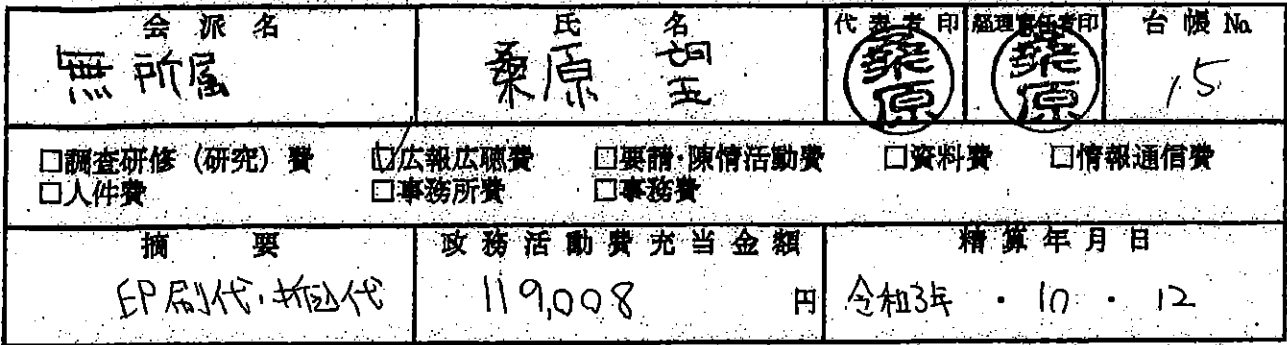 会派名 氏名 代表者印 経理責任者印 台帳No.
無所属 桑原 望 桑原 桑原 15
□調査研修（研究）費 ☑広報広聴費 □要請・陳情活動費 □資料費 □情報通信費
□人件費 □事務所費 □事務費
摘要 政務活動費充当金額 精算年月日
印刷代・折込代 119,008 円 令和3年・10・12